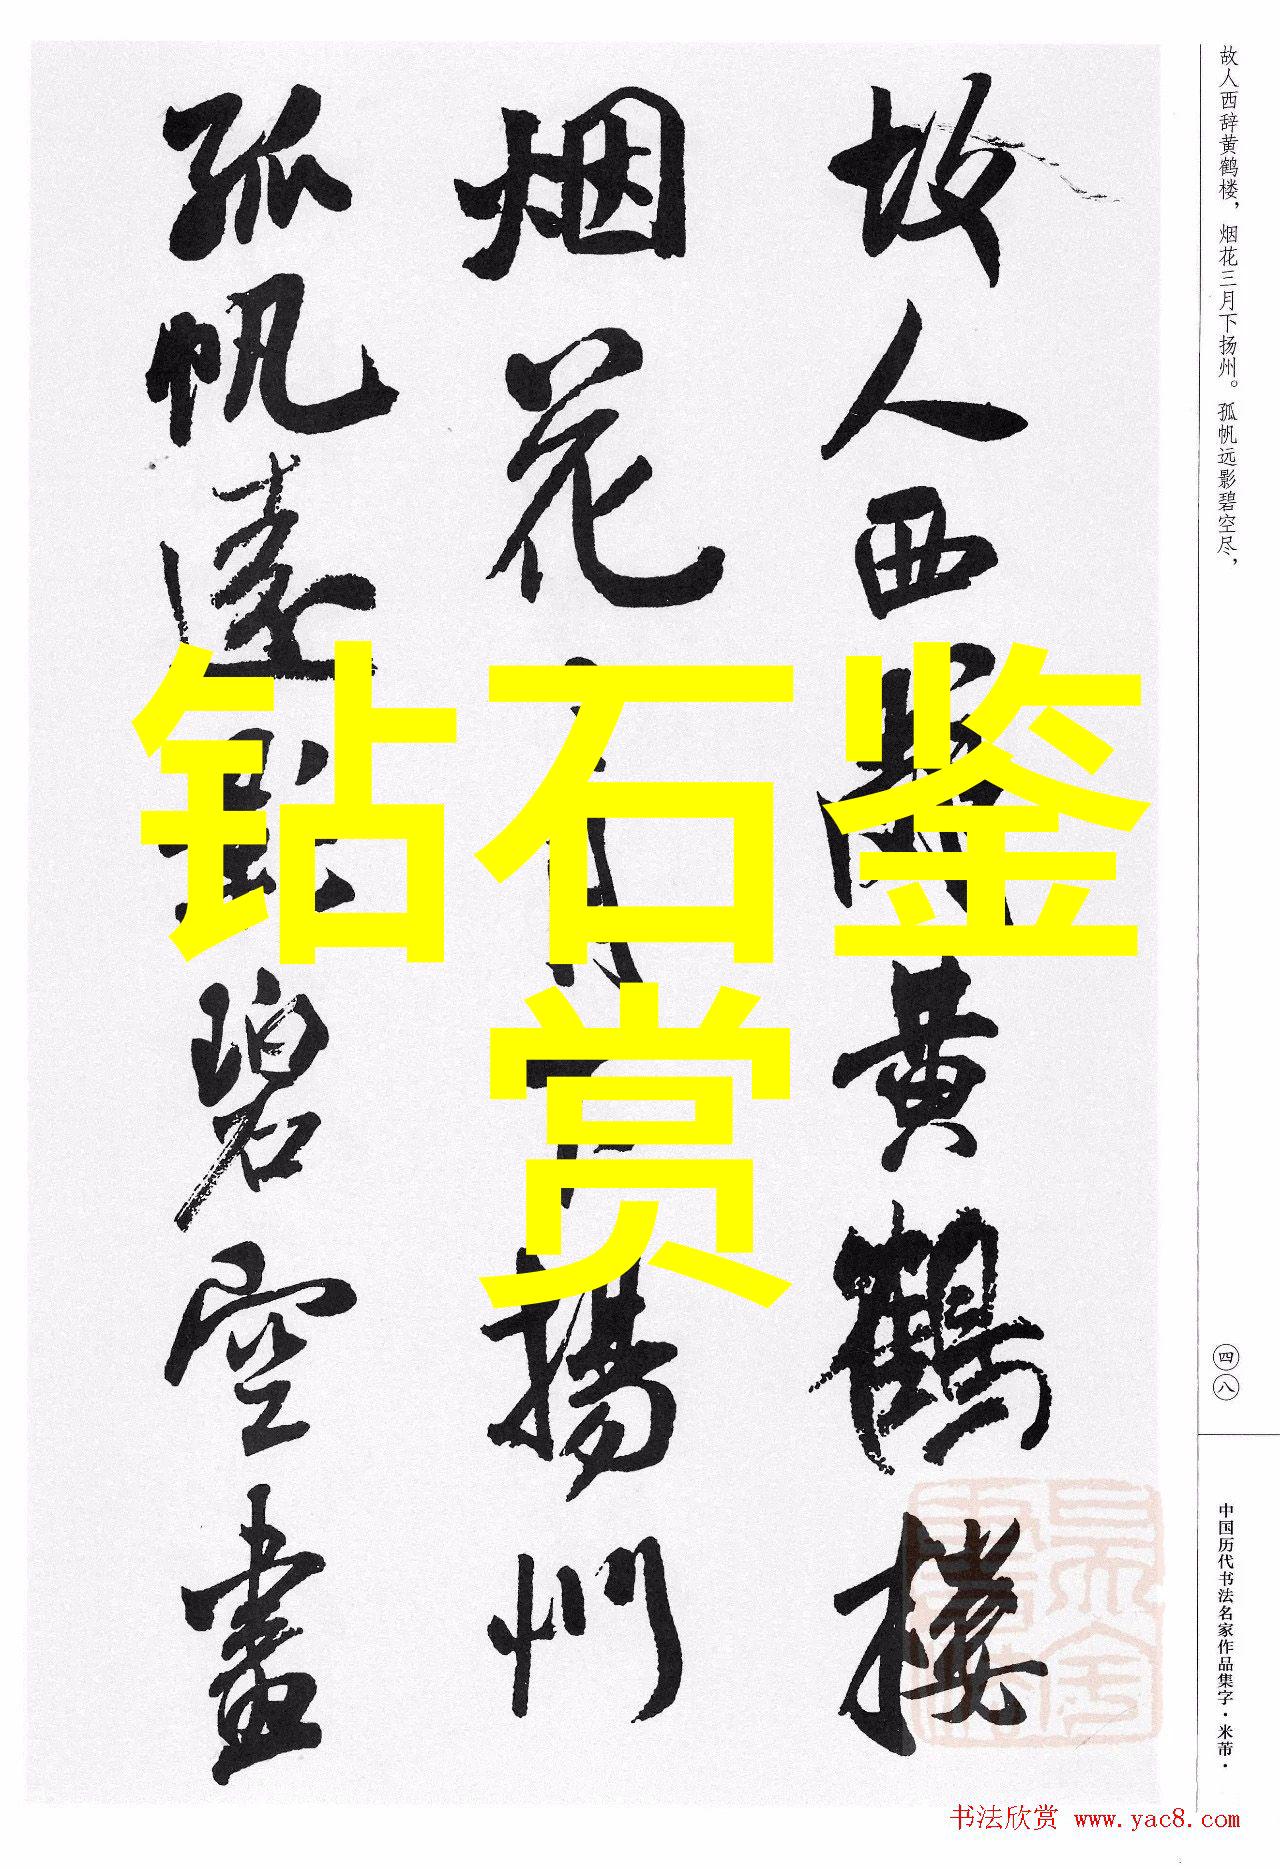 故人西辞黄鹤楼，烟花三月下扬州。孤帆远影碧空尽，
故人西辭黄鶴樓
烟花三月下揚州
孤帆遠影碧空盡
钻石鉴
赏
四八
中国历代书法名家作品集字·米芾·
书法欣赏 www.yac8.com